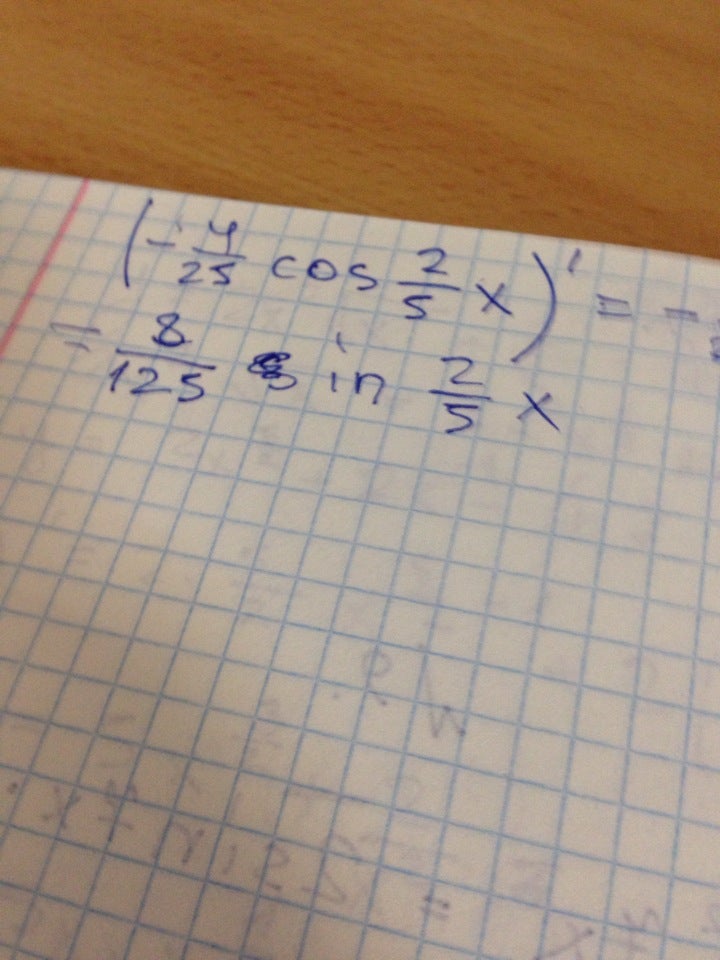 (-4/25 cos 2/5 x)' = -
= 8/125 sin 2/5 x